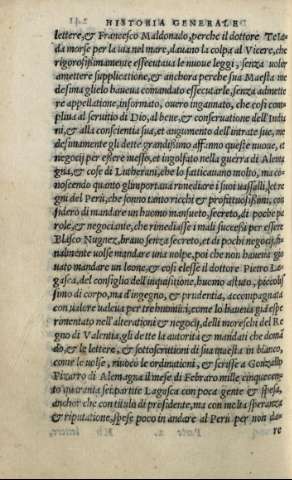 HISTORIA GENERALE
lettere, & Francesco Maldonado, perche il dottore Teia
da morse per la uia nel mare, dauano la colpa al Vicere, che
rigorosissimamente essecutaua le nuoue leggi, senza uoler
amettere supplicatione, & anchora perche sua Maesta me
desima glielo haueua comandato essecutarle, senza admette
re appellatione, informato, ouero ingannato, che cosi com
pliua al seruitio di Dio, al bene, & conseruatione dell'Indi
ni, & alla conscientia sua, et augumento dell'intrate sue, me
desimamente gli dette grandissimo affanno queste nuoue, et
negocij per essere messo, et ingolfato nella guerra di Alema
gna, & cose di Lutherani, che lo fatticauano molto, ma co
noscendo quanto gl'importaua rimediare i suoi uassalli, et re
gni del Perù, che sonno tanto ricchi & profittuosissimi, con
siderò di mandare un huomo mansueto, secreto, di poche pa
role, & negociante, che rimediasse i mali successi per essere
Blasco Nugnez, brauo senza secreto, et di pochi negocij, fi
nalmente uolse mandare una uolpe, poi che non haueua gio
uato mandare un leone, & cosi elesse il dottore Pietro La
gasca, del consiglio dell'inquisitione, huomo astuto, piccolis
simo di corpo, ma d'ingegno, & prudentia, accompagnata
con ualere ualeua per tre huomini, come lo haueua già espe
rimentato nell'alterationi & negocij, delli moreschi del Re
gno di Valentia, gli dette la autorità & mandati che doman
dò, & le lettere, & sottoscrittioni di sua maestà in bianco,
come le uolse, riuocò le ordinationi, & scrisse a Gonzallo
Pizarro di Alemagna il mese di Febraro mille cinquecen
to quaranta sei, partite Lagasca con poca gente & spesa,
anchor che con titulo di presidente, ma con molta speranza
& riputatione, spese poco in andare al Perù per non da
re